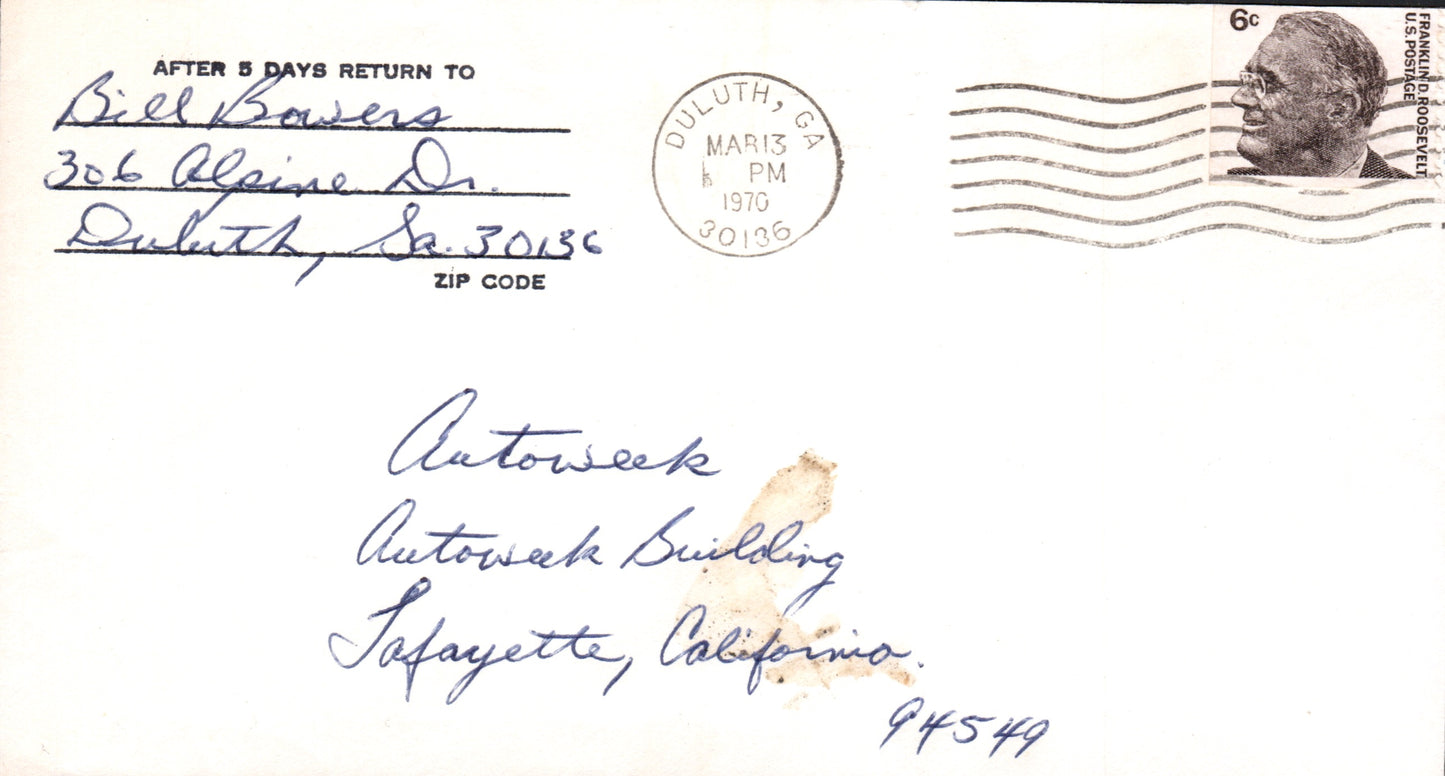 AFTER 5 DAYS RETURN TO
Bill Bowers
306 Alpine Dr.
Duluth, Ga. 30136
ZIP CODE
DULUTH, GA
MAR 13
PM
1970
30136
6c
FRANKLIN D. ROOSEVELT
U.S. POSTAGE
Autoweek
Autoweek Building
Lafayette, California.
94549